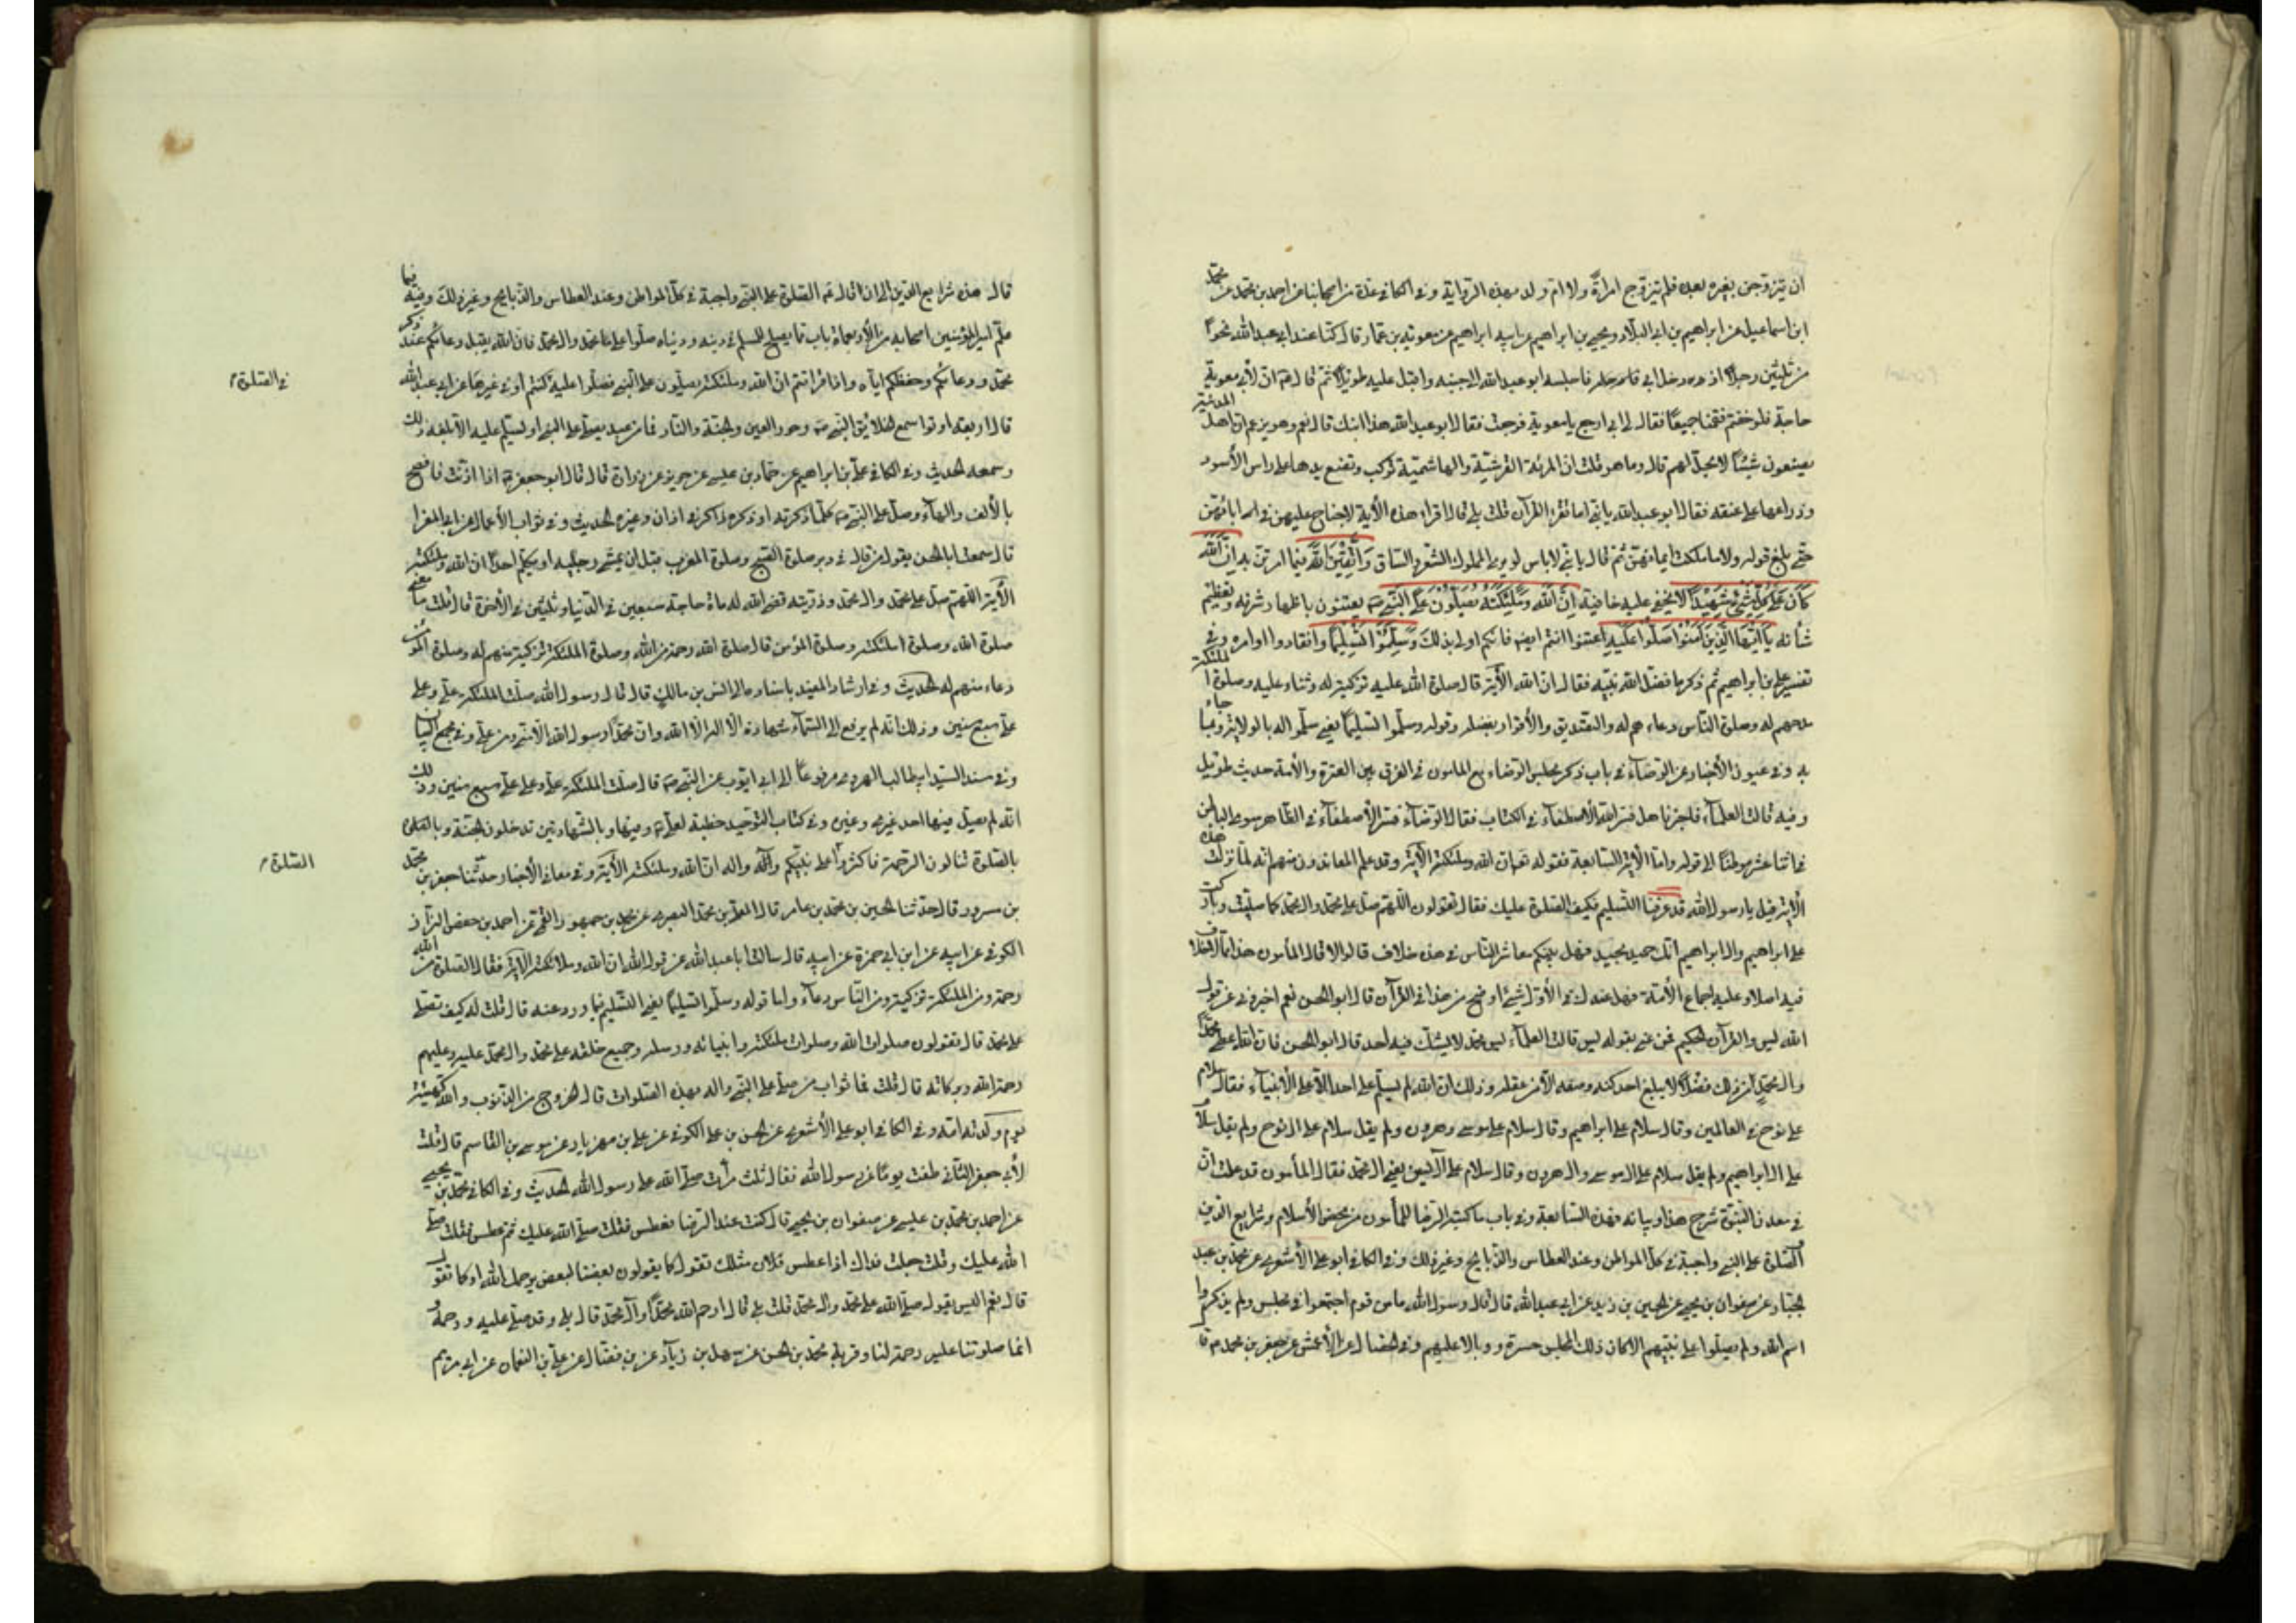 ان يتزوجن بغيره بعده فلم يتزوج امرأة ولا ام ولد بهذه الرواية وفى الكافى عدة من اصحابنا عن احمد بن محمد عن محمد
ابن اسماعيل عن ابراهيم بن ابى البلاد ويحيى بن ابراهيم عن ابيه ابراهيم عن معوية بن عمار قال كنا عند ابى عبد الله نحوًا
من ثلثين رجلًا اذ دخل ابى فاجلسه ابو عبد الله الى جنبه واقبل عليه طويلًا ثم قال ان لأبى معوية
حاجة فلو خففتم فقمنا جميعًا فقال لى ابى ارجع يا معوية فرجعت فقال ابو عبد الله هذا ابنك قال نعم وهو يزعم ان اهل المدينة
يصنعون شيئًا لا يحل لهم قال وما هو قلت ان المرئة القرشية والهاشمية تركب وتضع يدها على راس الأسود
وذراعها على عنقه فقال ابو عبد الله يا بنى اما تقرء القرآن قلت بلى قال اقرء هذه الأية لا جناح عليهن فى ابائهن
حتى بلغ قوله ولا ما ملكت ايمانهن ثم قال يا بنى لا باس لو يرى المملوك الشعر والساق وَاتَّقِينَ اللَّهَ فيما امرتن به اِنَّ اللَّهَ
كَانَ عَلَى كُلِّ شَىْءٍ شَهِيدًا لا يخفى عليه خافية اِنَّ اللَّهَ وَمَلَئِكَتَهُ يُصَلُّونَ عَلَى النَّبِىِّ يعتنون باظهار شرفه وتعظيم
شأنه يَا اَيُّهَا الَّذِينَ آمَنُوا صَلُّوا عَلَيْهِ اعتنوا انتم ايضا فانكم اولى بذلك وَسَلِّمُوا تَسْلِيمًا وانقادوا لاوامره وفى
تفسير على بن ابراهيم ثم ذكر ما فضل الله نبيه فقال ان الله الأية قال صلوة الله عليه تزكية له وثناء عليه وصلوة الملئكة
مدحهم له وصلوة الناس دعاءهم له والتصديق والأقرار بفضله وقوله وسلموا تسليمًا يعنى سلموا له بالولاية وبما جاء
به وفى عيون الأخبار عن الرضا فى باب ذكر مجلس الرضا مع المامون فى الفرق بين العترة والأمة حديث طويل
وفيه قالت العلماء فاخبرنا هل فسر الله الاصطفاء فى الكتاب فقال الرضا فسر الأصطفاء فى الظاهر سوى الباطن
فى اثنا عشر موطنًا الى قوله واما الأية السابعة فقوله تعالى ان الله وملئكته الأية وقد علم المعاندون منهم انه لما نزلت هذه
الأية قيل يا رسول الله قد عرفنا التسليم فكيف الصلوة عليك فقال تقولون اللهم صل على محمد وال محمد كما صليت وباركت
على ابراهيم وال ابراهيم انك حميد مجيد فهل بينكم معاشر الناس فى هذا خلاف قالوا لا قال المأمون هذا ما لا خلاف
فيه اصلا وعليه اجماع الأمة فهل عندك فى الأل شئ اوضح من هذا فى القرآن قال ابو الحسن نعم اخبرونى عن قول
الله يس والقرآن الحكيم فمن عنى بقوله يس قالت العلماء يس محمد لا يشك فيه احد قال ابو الحسن فان الله اعطى محمدًا
وال محمد من ذلك فضلًا لا يبلغ احد كنه وصفه الا من عقله وذلك ان الله لم يسلم على احد الا على الأنبياء فقال سلام
على نوح فى العالمين وقال سلام على ابراهيم وقال سلام على موسى وهرون ولم يقل سلام على ال نوح ولم يقل سلام
على ال ابراهيم ولم يقل سلام على ال موسى وال هرون وقال سلام على آل يس يعنى ال محمد فقال المأمون قد علمت ان
فى معدن النبوة شرح هذا وبيانه فهذه السابعة وفى باب ما كتبه الرضا للمأمون من محض الأسلام وشرايع الدين
والصلوة على النبى واجبة فى كل المواطن وعند العطاس والذبايح وغير ذلك وفى الكافى ابو على الأشعرى عن محمد بن عبد
الجبار عن صفوان بن يحيى عن الحسين بن زيد عن ابى عبد الله قال قال رسول الله ما من قوم اجتمعوا فى مجلس ولم يذكروا
اسم الله ولم يصلوا على نبيهم الا كان ذلك المجلس حسرة ووبالا عليهم وفى الخصال عن الأعمش عن جعفر بن محمد قا
قال هذه شرايع الدين الى ان قال والصلوة على النبى واجبة فى كل المواطن وعند العطاس والذبايح وغير ذلك وفيه فيما
علم امير المؤمنين اصحابه من الأربعمأة باب مما يصلح للمسلم فى دينه ودنياه صلوا على محمد وال محمد فان الله يقبل دعائكم عند ذكر
محمد ودعائكم وحفظكم اياه واذا قرأتم ان الله وملئكته يصلون على النبى فصلوا عليه كنتم او فى غيرها عن ابى عبد الله
فى الصلوة
قال اربعة اوتوا سمع الخلائق النبى وحور العين والجنة والنار فما من عبد يصلى على النبى او يسلم عليه الا بلغه ذلك
وسمعه الحديث وفى الكافى على بن ابراهيم عن حماد بن عيسى عن حريز عن زرارة قال قال ابو جعفر اذا اذنت فافصح
بالألف والهاء وصل على النبى كلما ذكرته او ذكره ذاكر فى اذان وغيره الحديث وفى ثواب الأعمال عن ابى المغرا
قال سمعت ابا الحسن يقول من قال فى دبر صلوة الصبح وصلوة المغرب قبل ان يثنى رجليه او يكلم احدًا ان الله وملئكته
الأية اللهم صل على محمد وال محمد وذريته قضى الله له مأة حاجة سبعين فى الدنيا وثلثين فى الأخرة قال قلت ما معنى
صلوة الله وصلوة ملئكته وصلوة المؤمن قال صلوة الله رحمة من الله وصلوة الملئكة تزكية منهم له وصلوة المؤمن
دعاء منهم له الحديث وفى ارشاد المفيد باسناده الى انس بن مالك قال قال رسول الله صلت الملئكة على وعلى
على سبع سنين وذلك انه لم يرفع الى السماء شهادة ان لا اله الا الله وان محمدًا رسول الله الا منى ومن على وفى مجمع البيان
وفى مسند السيد ابى طالب الهروى مرفوعًا الى ابى ايوب عن النبى قال صلت الملئكة على وعلى على سبع سنين وذلك
انه لم يصل فيها احد غيرى وغيره وفى كتاب التوحيد خطبة لعلى وفيها وبالشهادتين تدخلون الجنة وبالصلوة
بالصلوة تنالون الرحمة فاكثروا على نبيكم وآله ان الله وملئكته الأية وفى معانى الأخبار حدثنا جعفر بن محمد
الصلوة
بن مسرور قال حدثنا الحسين بن محمد بن عامر قال المعلى بن محمد البصرى عن محمد بن جمهور القمى عن احمد بن حفص البزاز
الكوفى عن ابيه عن ابن ابى حمزة عن ابيه قال سالت ابا عبد الله عن قول الله ان الله وملائكته الأية فقال الصلوة من الله
رحمة ومن الملئكة تزكية ومن الناس دعاء واما قوله وسلموا تسليمًا يعنى التسليم فيما ورد عنه قال قلت له كيف نصلى
على محمد قال تقولون صلوات الله وصلوات ملئكته وانبيائه ورسله وجميع خلقه على محمد وال محمد عليه وعليهم
رحمة الله وبركاته قال قلت فما ثواب من صلى على النبى واله بهذه الصلوات قال الخروج من الذنوب والله كهيئة
يوم ولدته امه وفى الكافى ابو على الأشعرى عن الحسن بن على الكوفى عن على بن مهزيار عن موسى بن القاسم قال قلت
لأبى جعفر الثانى طفت يومًا عن رسول الله فقال ثلث مرات صلى الله على رسول الله الحديث وفى الكافى محمد بن يحيى
عن احمد بن محمد بن عيسى عن صفوان بن يحيى قال كنت عند الرضا فعطس فقلت صلى الله عليك ثم عطس فقلت صلى
الله عليك وقلت جعلت فداك اذا عطس مثلك نقول كما يقولون بعضنا لبعض يرحمك الله او كما نقول
قال نعم اليس يقول صلى الله على محمد وال محمد قلت بلى قال ارحم الله محمدًا وآل محمد قال بلى وقد صلى عليه ورحمه
انما صلوتنا عليه رحمة لنا وقربة محمد بن الحسن عن سهل بن زياد عن بن فضال عن على بن النعمان عن ابى مريم